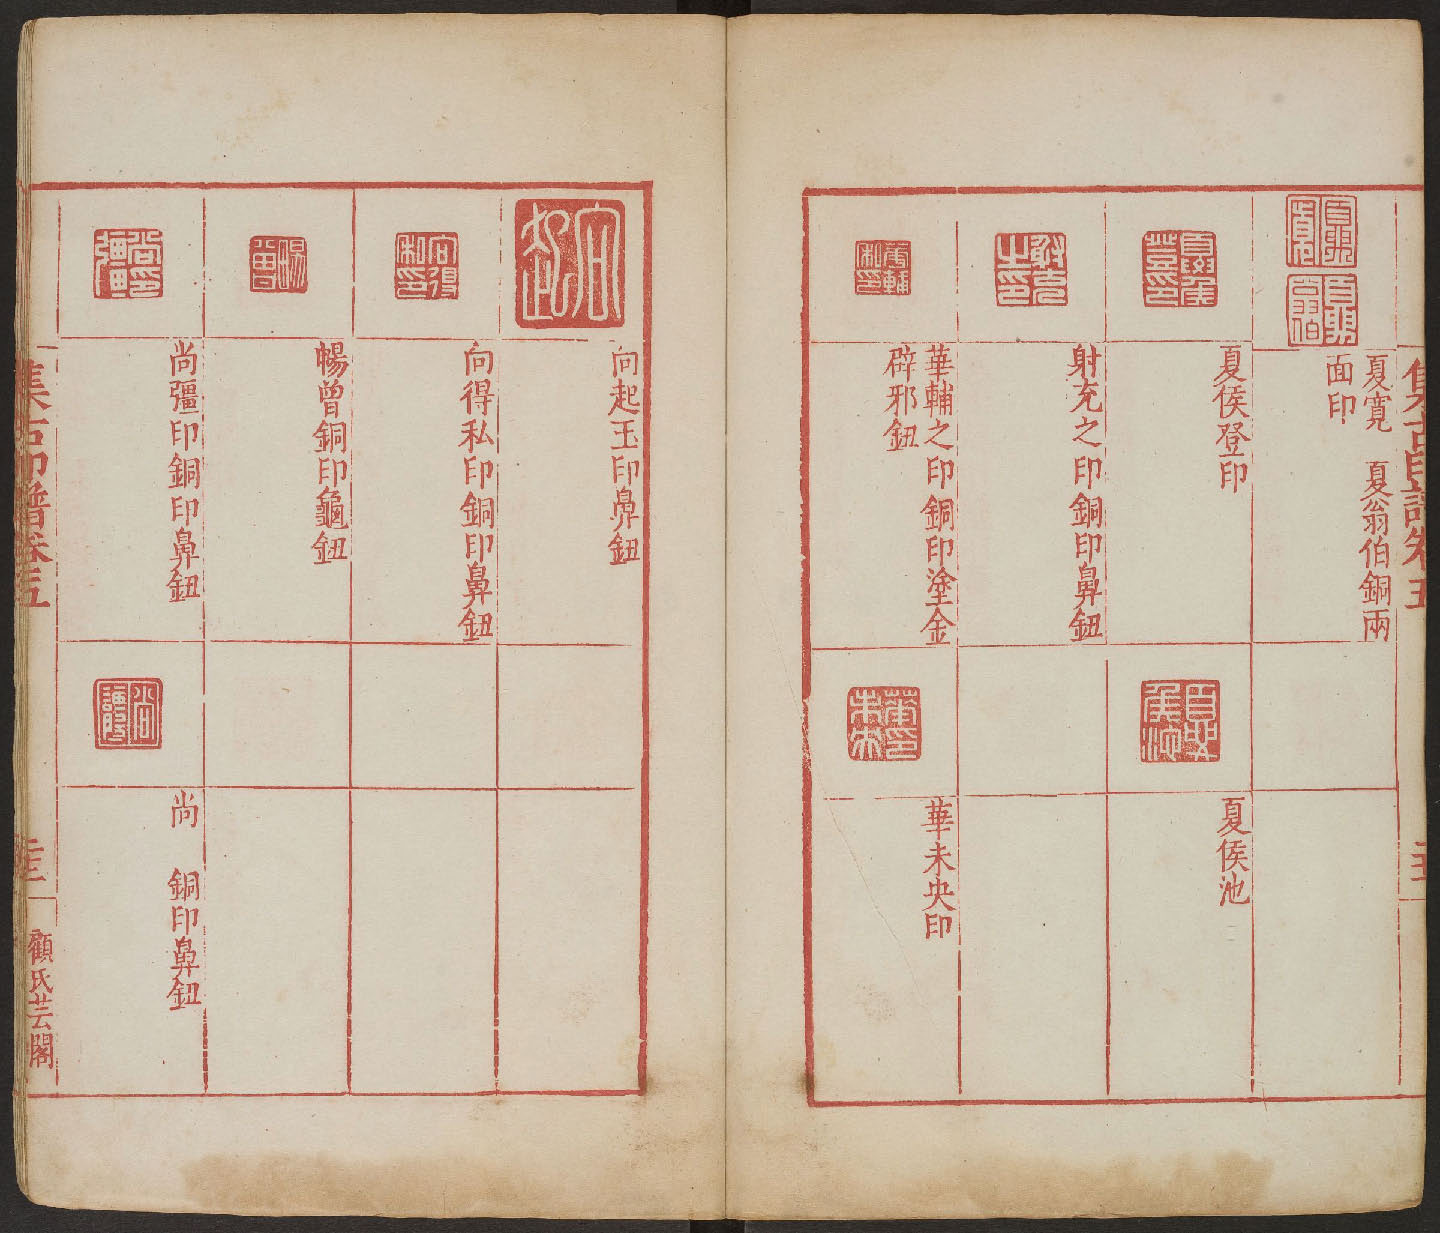 集古印譜卷五
夏寬 夏翁伯銅兩
面印
夏侯登印
夏侯池
射充之印銅印鼻鈕
華輔之印銅印塗金
辟邪鈕
華未央印
向起玉印鼻鈕
向得私印銅印鼻鈕
暢曾銅印龜鈕
尚彊印銅印鼻鈕
尚 銅印鼻鈕
集古印譜卷五
顧氏芸閣